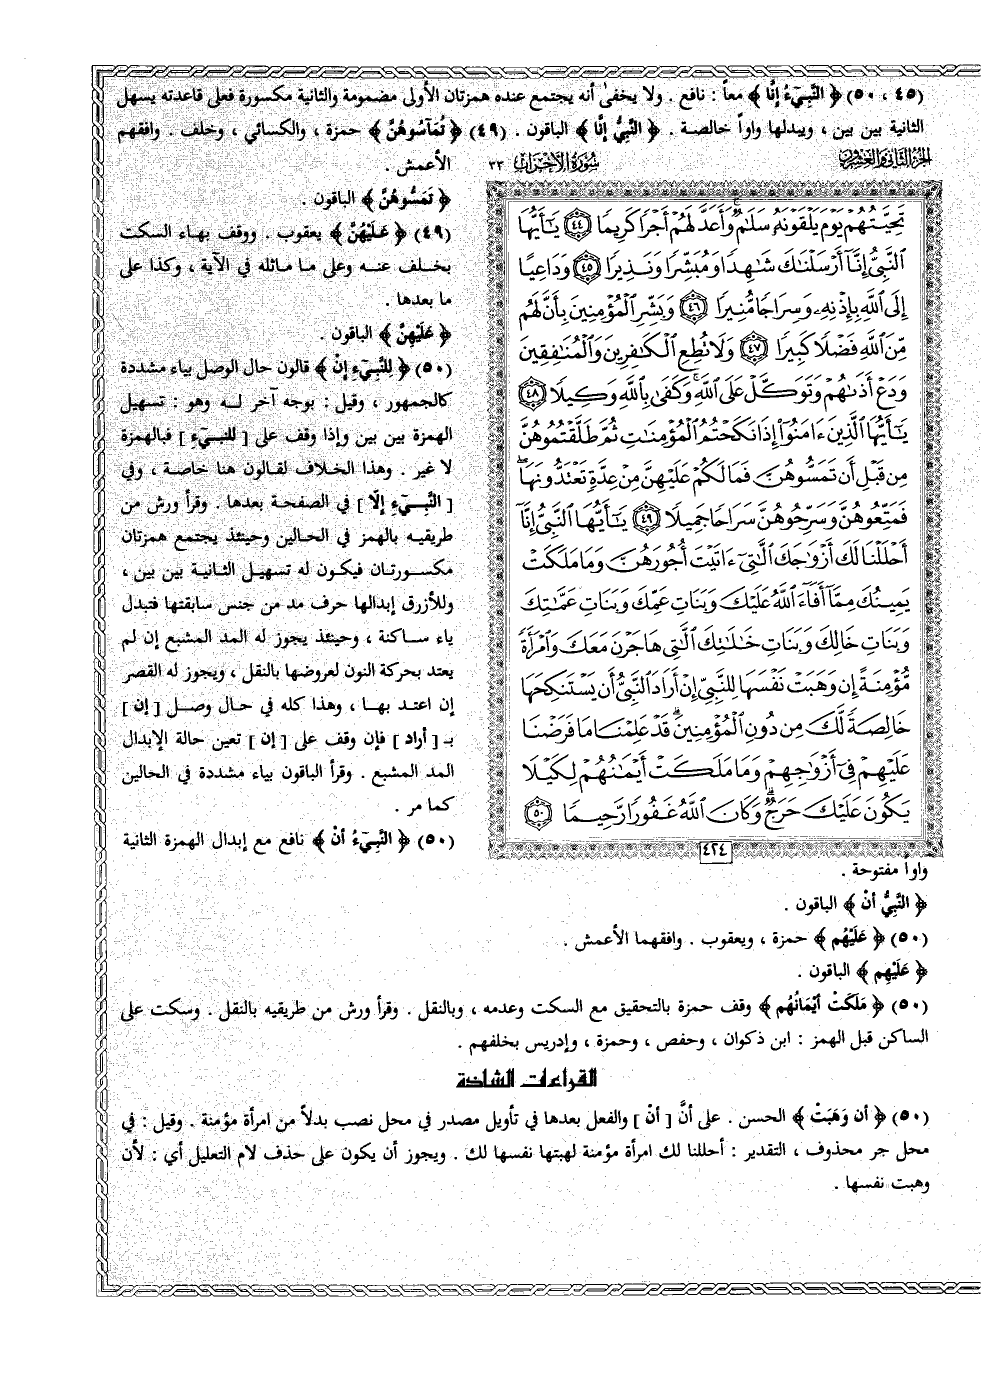 (٤٥ ، ٥٠) ﴿ النَّبِيءُ إِنَّا ﴾ معاً : نافع . ولا يخفىٰ أنه يجتمع عنده همزتان الأولى مضمومة والثانية مكسورة فعلى قاعدته يسهل
الثانية بين بين ، ويبدلها واواً خالصة . ﴿ النَّبِيُّ إِنَّا ﴾ الباقون . (٤٩) ﴿ تُمَاسُّوهُنَّ ﴾ حمزة ، والكسائي ، وخلف . وافقهم
الأعمش .
﴿ تَمَسُّوهُنَّ ﴾ الباقون .
(٤٩) ﴿ عَلَيْهُنَّ ﴾ يعقوب . ووقف بهاء السكت
بخلف عنه وعلى ما ماثله في الآية ، وكذا على
ما بعدها .
﴿ عَلَيْهِنَّ ﴾ الباقون .
(٥٠) ﴿ لِلنَّبِيءِ إِنْ ﴾ قالون حال الوصل بياء مشددة
كالجمهور ، وقيل : بوجه آخر له وهو : تسهيل
الهمزة بين بين وإذا وقف على [ للنبيء ] فبالهمزة
لا غير . وهذا الخلاف لقالون هنا خاصة ، وفي
[ النَّبِيءِ إلَّا ] في الصفحة بعدها . وقرأ ورش من
طريقيه بالهمز في الحالين وحينئذ يجتمع همزتان
مكسورتان فيكون له تسهيل الثانية بين بين ،
وللأزرق إبدالها حرف مد من جنس سابقتها فتبدل
ياء ساكنة ، وحينئذ يجوز له المد المشبع إن لم
يعتد بحركة النون لعروضها بالنقل ، ويجوز له القصر
إن اعتد بها ، وهذا كله في حال وصل [ إن ]
بـ [ أراد ] فإن وقف على [ إن ] تعين حالة الإبدال
المد المشبع . وقرأ الباقون بياء مشددة في الحالين
كما مر .
(٥٠) ﴿ النَّبِيءُ أَنْ ﴾ نافع مع إبدال الهمزة الثانية
الجزء الثاني والعشرون
سورة الأحزاب ٣٣
تَحِيَّتُهُمْ يَوْمَ يَلْقَوْنَهُۥ سَلَٰمٌ ۚ وَأَعَدَّ لَهُمْ أَجْرًا كَرِيمًا ٤٤ يَٰٓأَيُّهَا
ٱلنَّبِىُّ إِنَّآ أَرْسَلْنَٰكَ شَٰهِدًا وَمُبَشِّرًا وَنَذِيرًا ٤٥ وَدَاعِيًا
إِلَى ٱللَّهِ بِإِذْنِهِۦ وَسِرَاجًا مُّنِيرًا ٤٦ وَبَشِّرِ ٱلْمُؤْمِنِينَ بِأَنَّ لَهُم
مِّنَ ٱللَّهِ فَضْلًا كَبِيرًا ٤٧ وَلَا تُطِعِ ٱلْكَٰفِرِينَ وَٱلْمُنَٰفِقِينَ
وَدَعْ أَذَىٰهُمْ وَتَوَكَّلْ عَلَى ٱللَّهِ ۚ وَكَفَىٰ بِٱللَّهِ وَكِيلًا ٤٨
يَٰٓأَيُّهَا ٱلَّذِينَ ءَامَنُوٓا۟ إِذَا نَكَحْتُمُ ٱلْمُؤْمِنَٰتِ ثُمَّ طَلَّقْتُمُوهُنَّ
مِن قَبْلِ أَن تَمَسُّوهُنَّ فَمَا لَكُمْ عَلَيْهِنَّ مِنْ عِدَّةٍ تَعْتَدُّونَهَا ۖ
فَمَتِّعُوهُنَّ وَسَرِّحُوهُنَّ سَرَاحًا جَمِيلًا ٤٩ يَٰٓأَيُّهَا ٱلنَّبِىُّ إِنَّآ
أَحْلَلْنَا لَكَ أَزْوَٰجَكَ ٱلَّٰتِىٓ ءَاتَيْتَ أُجُورَهُنَّ وَمَا مَلَكَتْ
يَمِينُكَ مِمَّآ أَفَآءَ ٱللَّهُ عَلَيْكَ وَبَنَاتِ عَمِّكَ وَبَنَاتِ عَمَّٰتِكَ
وَبَنَاتِ خَالِكَ وَبَنَاتِ خَٰلَٰتِكَ ٱلَّٰتِى هَاجَرْنَ مَعَكَ وَٱمْرَأَةً
مُّؤْمِنَةً إِن وَهَبَتْ نَفْسَهَا لِلنَّبِىِّ إِنْ أَرَادَ ٱلنَّبِىُّ أَن يَسْتَنكِحَهَا
خَالِصَةً لَّكَ مِن دُونِ ٱلْمُؤْمِنِينَ ۗ قَدْ عَلِمْنَا مَا فَرَضْنَا
عَلَيْهِمْ فِىٓ أَزْوَٰجِهِمْ وَمَا مَلَكَتْ أَيْمَٰنُهُمْ لِكَيْلَا
يَكُونَ عَلَيْكَ حَرَجٌ ۗ وَكَانَ ٱللَّهُ غَفُورًا رَّحِيمًا ٥٠
٤٢٤
واواً مفتوحة .
﴿ النَّبِيُّ أَنْ ﴾ الباقون .
(٥٠) ﴿ عَلَيْهُم ﴾ حمزة ، ويعقوب . وافقهما الأعمش .
﴿ عَلَيْهِم ﴾ الباقون .
(٥٠) ﴿ مَلَكَتْ أَيْمَانُهُم ﴾ وقف حمزة بالتحقيق مع السكت وعدمه ، وبالنقل . وقرأ ورش من طريقيه بالنقل . وسكت على
الساكن قبل الهمز : ابن ذكوان ، وحفص ، وحمزة ، وإدريس بخلفهم .
القراءات الشاذة
(٥٠) ﴿ أَن وَهَبَتْ ﴾ الحسن . على أنَّ [ أنْ ] والفعل بعدها في تأويل مصدر في محل نصب بدلاً من امرأة مؤمنة . وقيل : في
محل جر محذوف ، التقدير : أحللنا لك امرأة مؤمنة لهبتها نفسها لك . ويجوز أن يكون على حذف لام التعليل أي : لأن
وهبت نفسها .